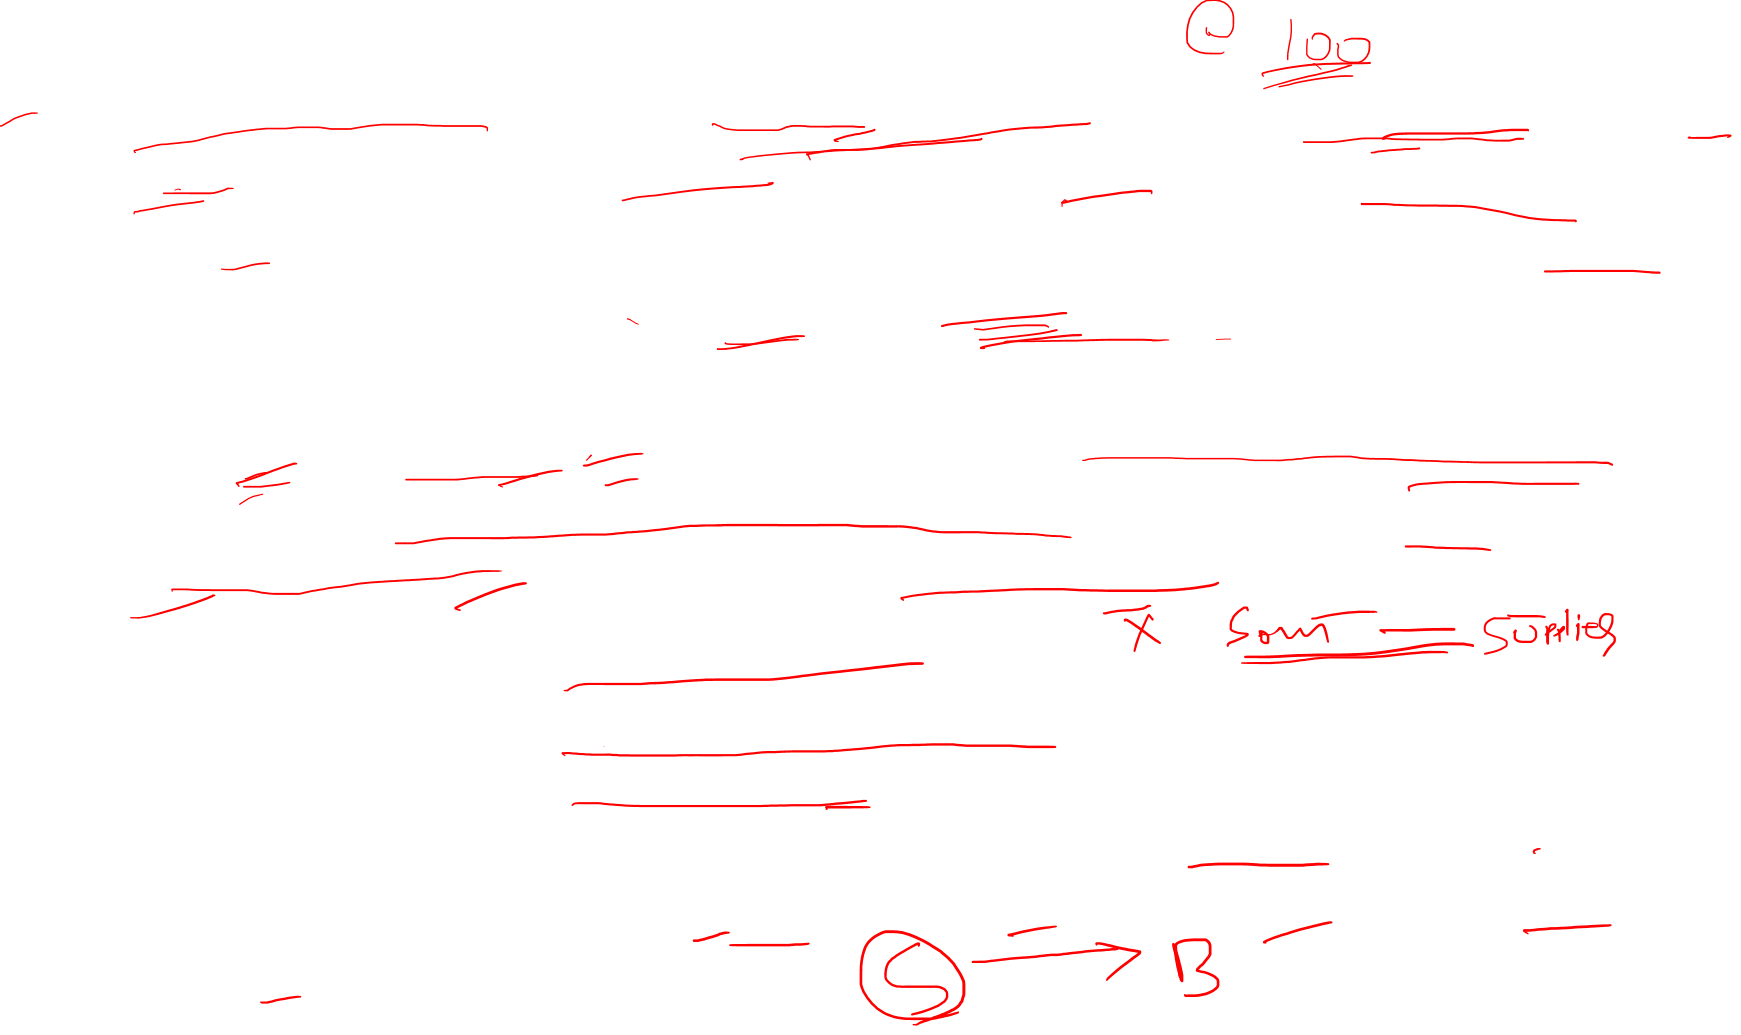 @ 100
X Soun — Supplies
S → B